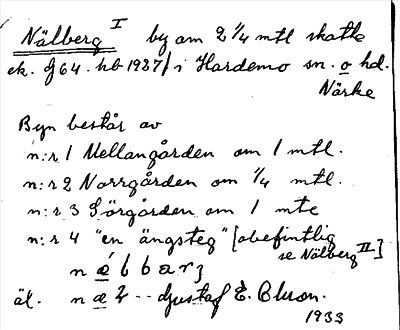 Nälberg I by om 2 1/4 mtl skatte
ek. g 64. hb 1937/ i Hardemo sn. o hd.
Närke
Byn består av
n:r 1 Mellangården om 1 mtl.
n:r 2 Norrgården om 1/4 mtl.
n:r 3 Sörgården om 1 mtl
n:r 4 "en ängsteg" [obefintlig
se Nälberg II]
äl. Gustaf E. Bluron.
1933